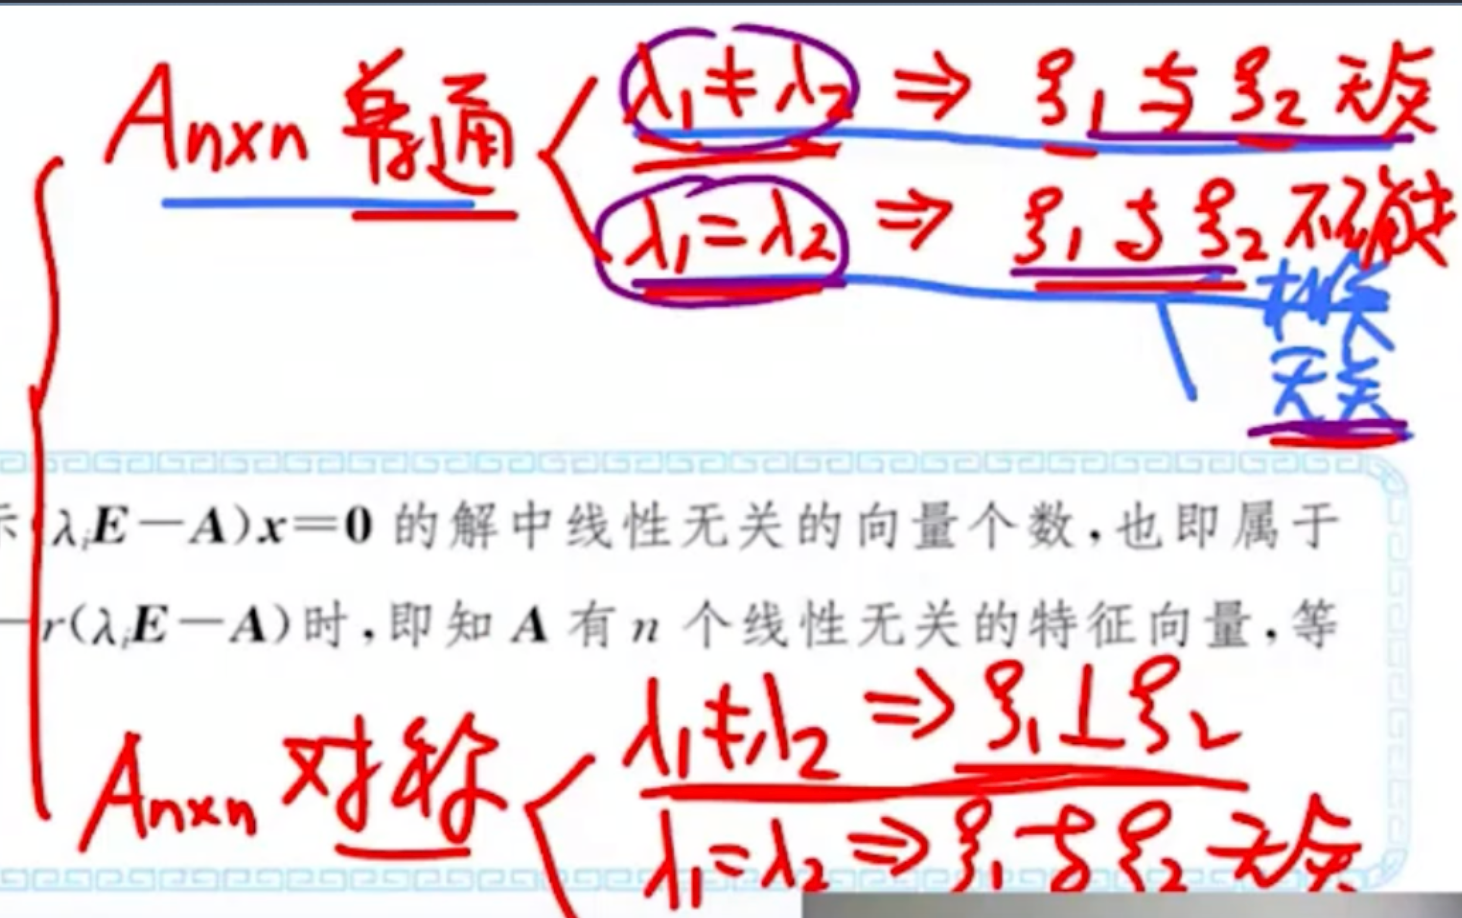 Anxn 普通
λ1≠λ2 ⇒ ξ1与ξ2 无关
λ1=λ2 ⇒ ξ1与ξ2 不确定
相关
无关
示(λᵢE-A)x=0 的解中线性无关的向量个数,也即属于
-r(λᵢE-A)时,即知 A 有 n 个线性无关的特征向量,等
Anxn 对称
λ1≠λ2 ⇒ ξ1⊥ξ2
λ1=λ2 ⇒ ξ1与ξ2 无关